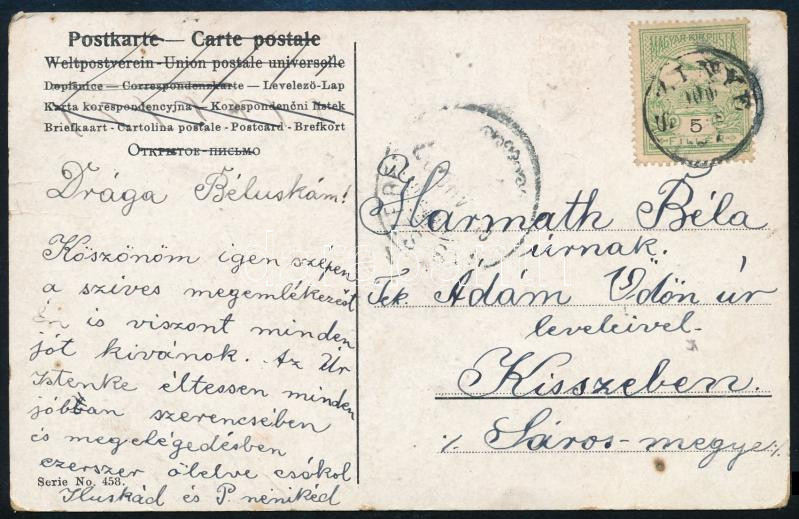 Postkarte — Carte postale
Weltpostverein - Union postale universelle
Dopisnice — Correspondenzkarte — Levelezö-Lap
Karta korespondencyjna — Korespondenčni listek
Briefkaart - Cartolina postale - Postcard - Brefkort
Открытое-письмо
Drága Béluskám!
Köszönöm igen szépen
a szives megemlékezést
én is viszont minden
jót kivánok. Az Úr
Istenke éltessen minden
jóban szerencsében
és megelégedésben
ezerszer ölelve csókol
Iluskád és P. nénikéd
Serie No. 458.
MAGYAR KIR. POSTA
5
FILLÉR
Harmath Béla
úrnak.
Tek. Ádám Ödön úr
leveleivel.
Kisszeben.
/. Sáros-megye /.